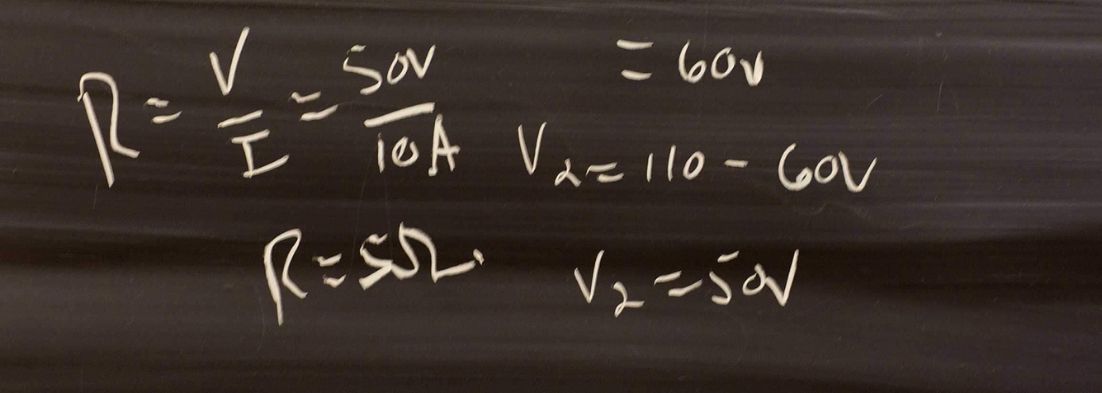 R = V/I = 50V/10A
R = 5Ω
= 60V
V2 = 110 - 60V
V2 = 50V